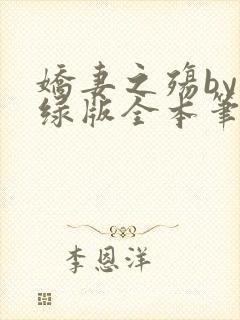 娇妻之殇by
绿版全本笔
李恩洋